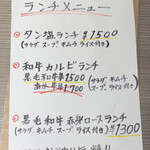 ランチメニュー
◎ タン塩ランチ ¥1500
(サラダ スープ キムチ ライス付き)
◎ 和牛カルビランチ
黒毛和牛 ¥1500
¥1700
(サラダ スープ キムチ ライス付き)
◎ 黒毛和牛 赤身ロースランチ
(サラダ キムチ スープ ライス付き) ¥1300